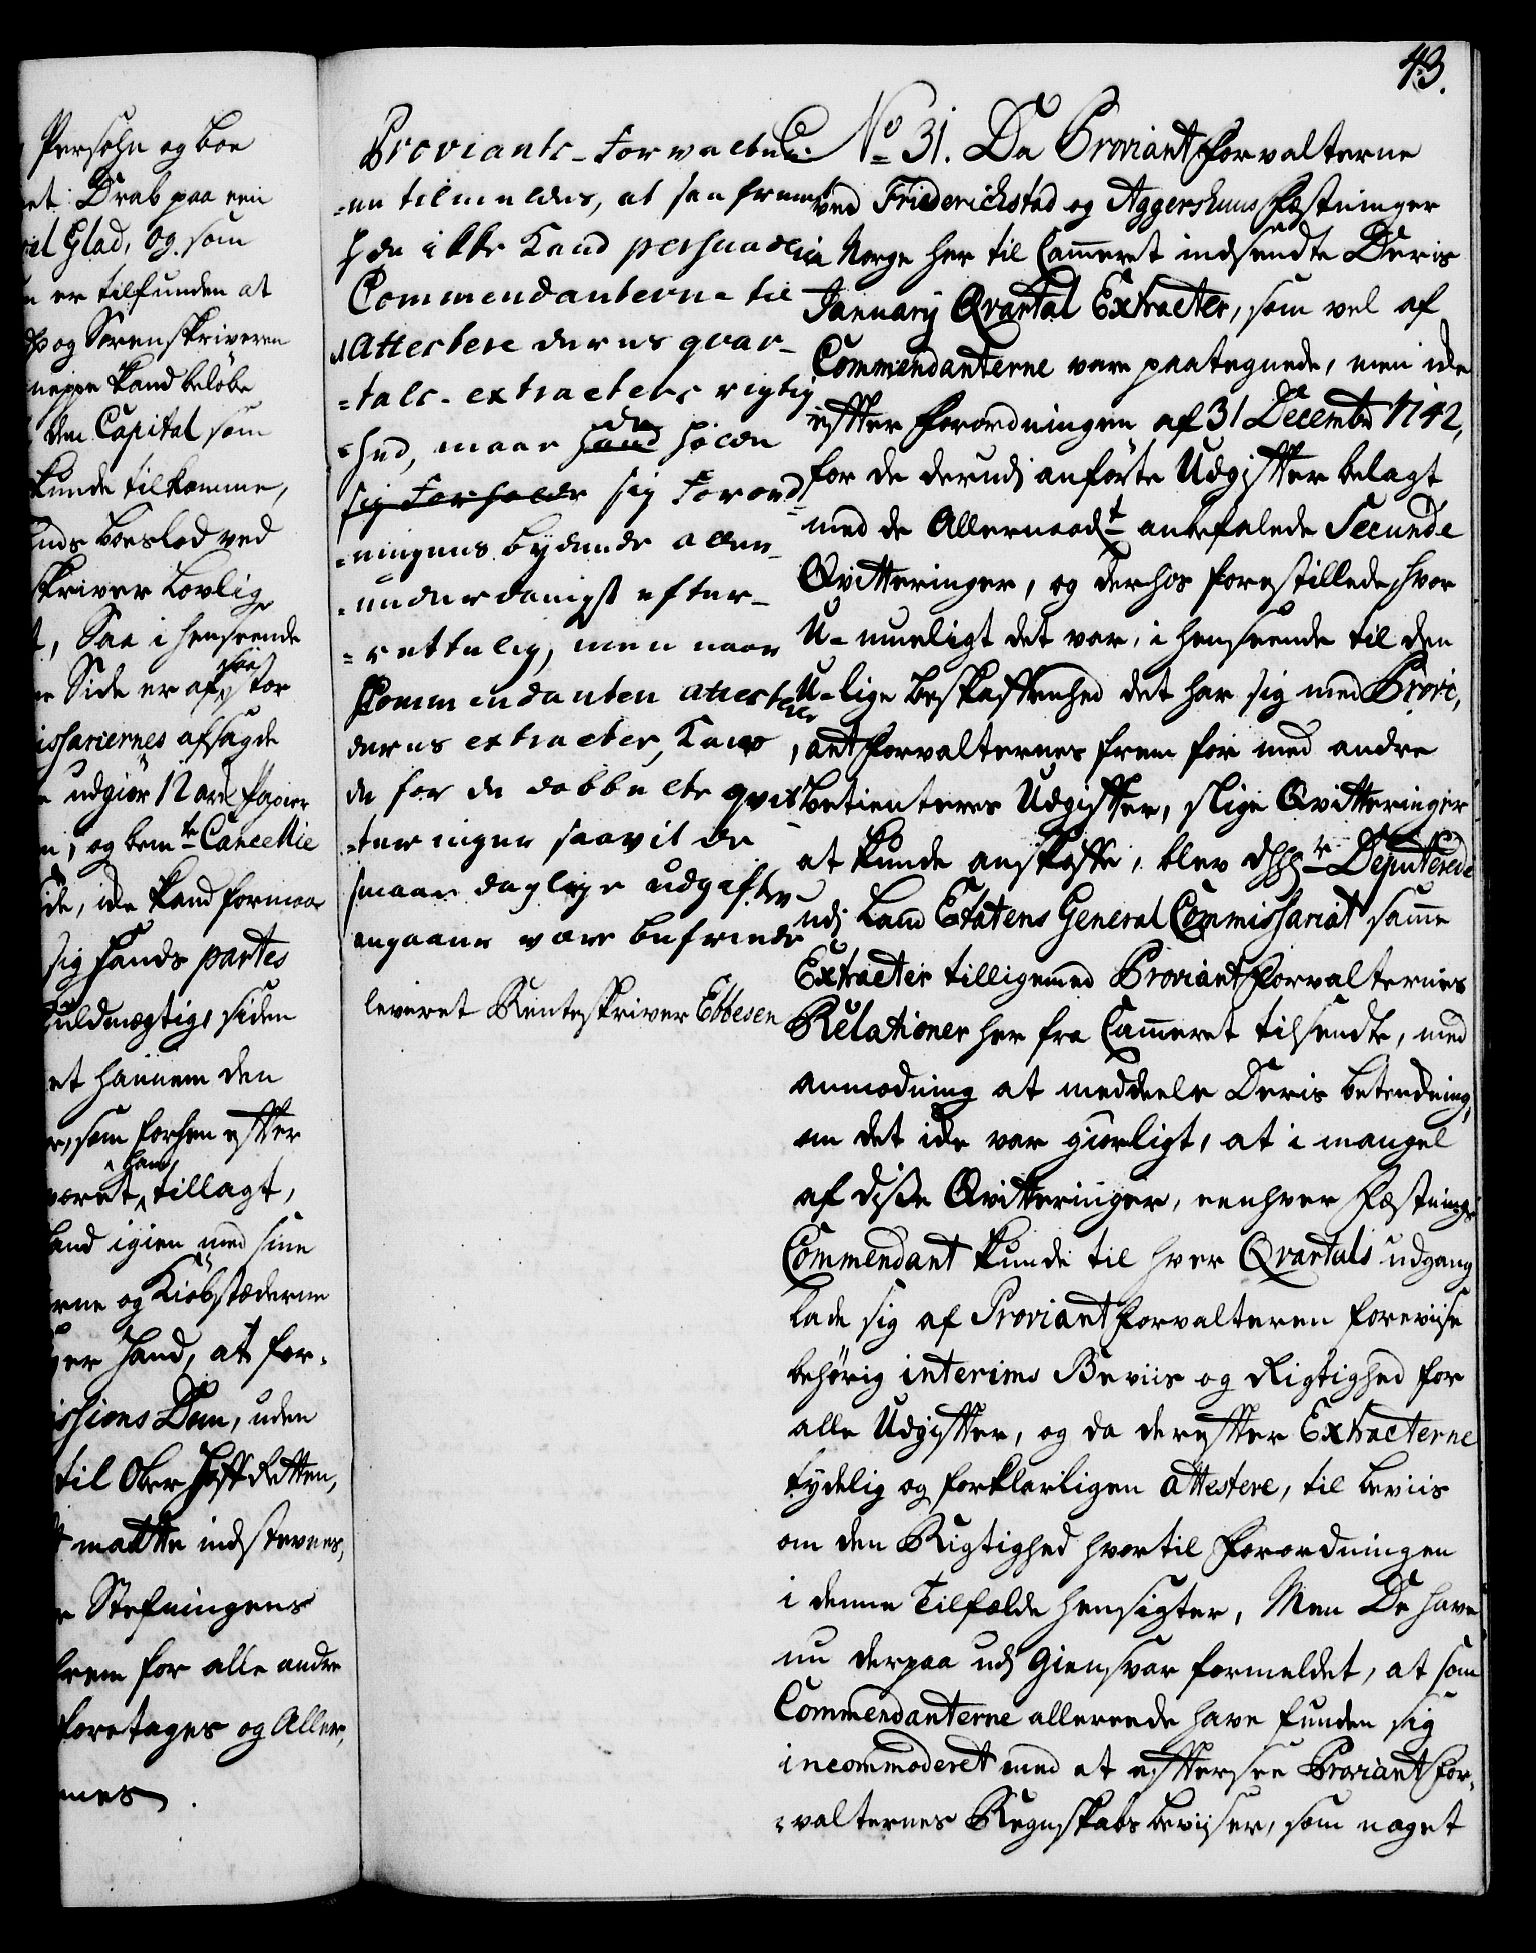 43.
Persohn og boe
et: Drab paa een
Glad, og som
er tilfunden at
og Sorenskriveren
neppe kand beløbe
den Capital som
kunde tilkomme,
boeslod ved
skriver Lovlig
, Saa i henseende
Side er af tor
issariernes afsagde
udgiør 12 ark Papier
, og bem.te Cancellie
de, icke kand formaae
sig hands partes
fuldmægtig, siden
et hannem den
som forhen efter
været ham tillagt,
land igien med sine
erne og Kiøbstæderne
Haand, at for-
issions Dom, uden
til Ober Hoff Retten,
maatte indstevnes,
Stefningens
frem for alle andre
foretages og Aller,
nes
Proviants-Forvalter-
-ne tilmeldes, at saa fremt
de ikke Kand persuadere
Commendanterne til
at Attestere deres qvar-
-tals-extracters rigtig
-hed, maae hand de holde
sig Forholde sig Forord-
-ningens bydende aller-
-underdanigst efter-
-rettelig, men naar
Commendanten attesterer
deres extracter, Kand
de for de dobbelte qvit-
-teringer saavit de
smaae daglige udgifter
angaaer være befriede
leveret Renteskriver Ebbesen
No 31. Da Proviantforvalterne
ved Friderichstad og Aggershuus Fæstninger
i Norge her til Cammeret indsendte Deris
Januarij Qvartal Extracter, som vel af
Commendanterne vare paategnede, men icke
efter Forordningen af 31 Decembr 1742,
for de derudj anførte Udgifter belagt
med de Allernaadt anbefalede Secunde
Qvitteringer, og derhos forestillede, hvor
U-mueligt det var, i henseende til den
U-lige beskaffenhed det har sig med Provi,
,antforvalternes frem for med andre
betienteres Udgifter, slige Qvitteringer
at kunde anskaffe, blev Deputerede
udj Land Etatens General Commissariat samme
Extracter tilligemed Proviantforvalternes
Relationer her fra Cammeret tilsendte, med
anmodning at meddeele Deris betenkning,
om det icke var giørligt, at i mangel
af disse Qvitteringer, eenhver Fæstnings
Commendant kunde til hver Qvartals udgang
lade sig af Proviantforvalteren foreviise
behørig interims Beviis og Rigtighed for
alle Udgifter, og da derefter Extracterne
tydelig og forklarligen attestere, til beviis
om den Rigtighed hvortil Forordningen
i denne Tilfælde hensigter, Men De have
nu derpaa udj Giensvar formeldet, at som
Commendanterne allerede have funden sig
incommoderet med at eftersee Proviantfor-
-valternes Regnskabs beviser, som noget